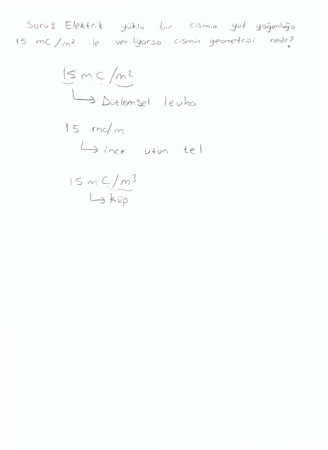 Soru: Elektrik yüklü bir cismin yük yoğunluğu
15 mC/m² ile veriliyorsa cismin geometrisi nedir?
15 mC/m²
Düzlemsel levha
15 mC/m
ince uzun tel
15 mC/m³
küp